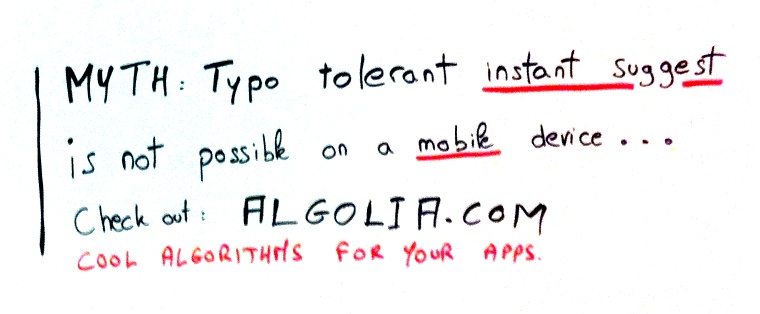 MYTH: Typo tolerant instant suggest
is not possible on a mobile device...
Check out: ALGOLIA.COM
COOL ALGORITHMS FOR YOUR APPS.